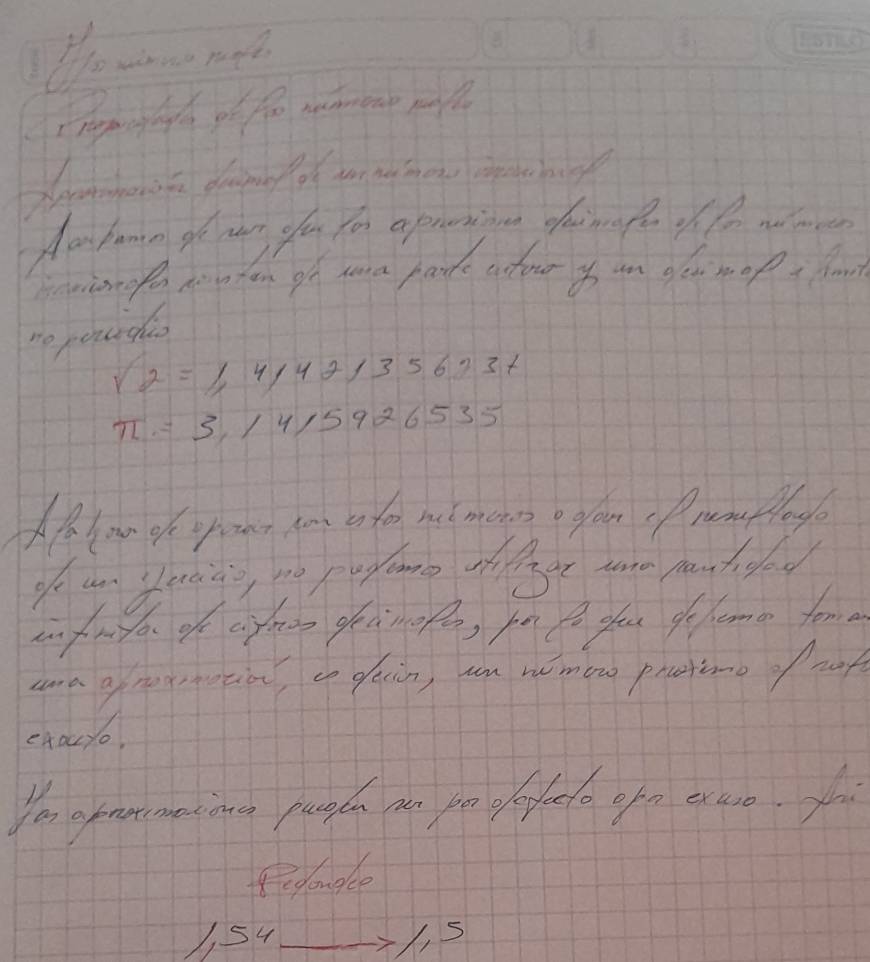 Los números reales
Propiedades de los números reales
Aproximación decimal de un número irracional
Acabamos de ver que las aproximo decimales de los números
irracionales constan de una parte entera y un decimal ilimit
no periódico
√2 = 1,41421356237
π = 3,1415926535
A la hora de operar con estos números o dar el resultado
de un ejercicio, no podemos utilizar una cantidad
infinita de cifras decimales, por lo que debemos tomar
una aproximación, es decir, un número próximo al
exacto.
Las aproximaciones pueden ser por defecto o por exceso. Así
Redondeo
1,54 → 1,5